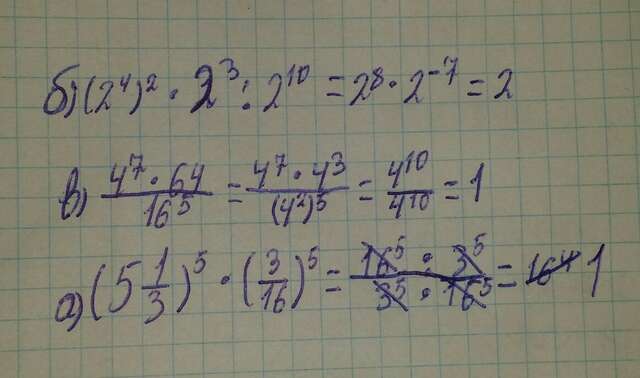 б) (2⁴)² · 2³ : 2¹⁰ = 2⁸ · 2⁻⁷ = 2
в) 4⁷ · 64 / 16⁵ = 4⁷ · 4³ / (4²)⁵ = 4¹⁰ / 4¹⁰ = 1
а) (5 1/3)⁵ · (3/16)⁵ = 16⁵ : 3⁵ / 3⁵ · 16⁵ = 16⁴ 1